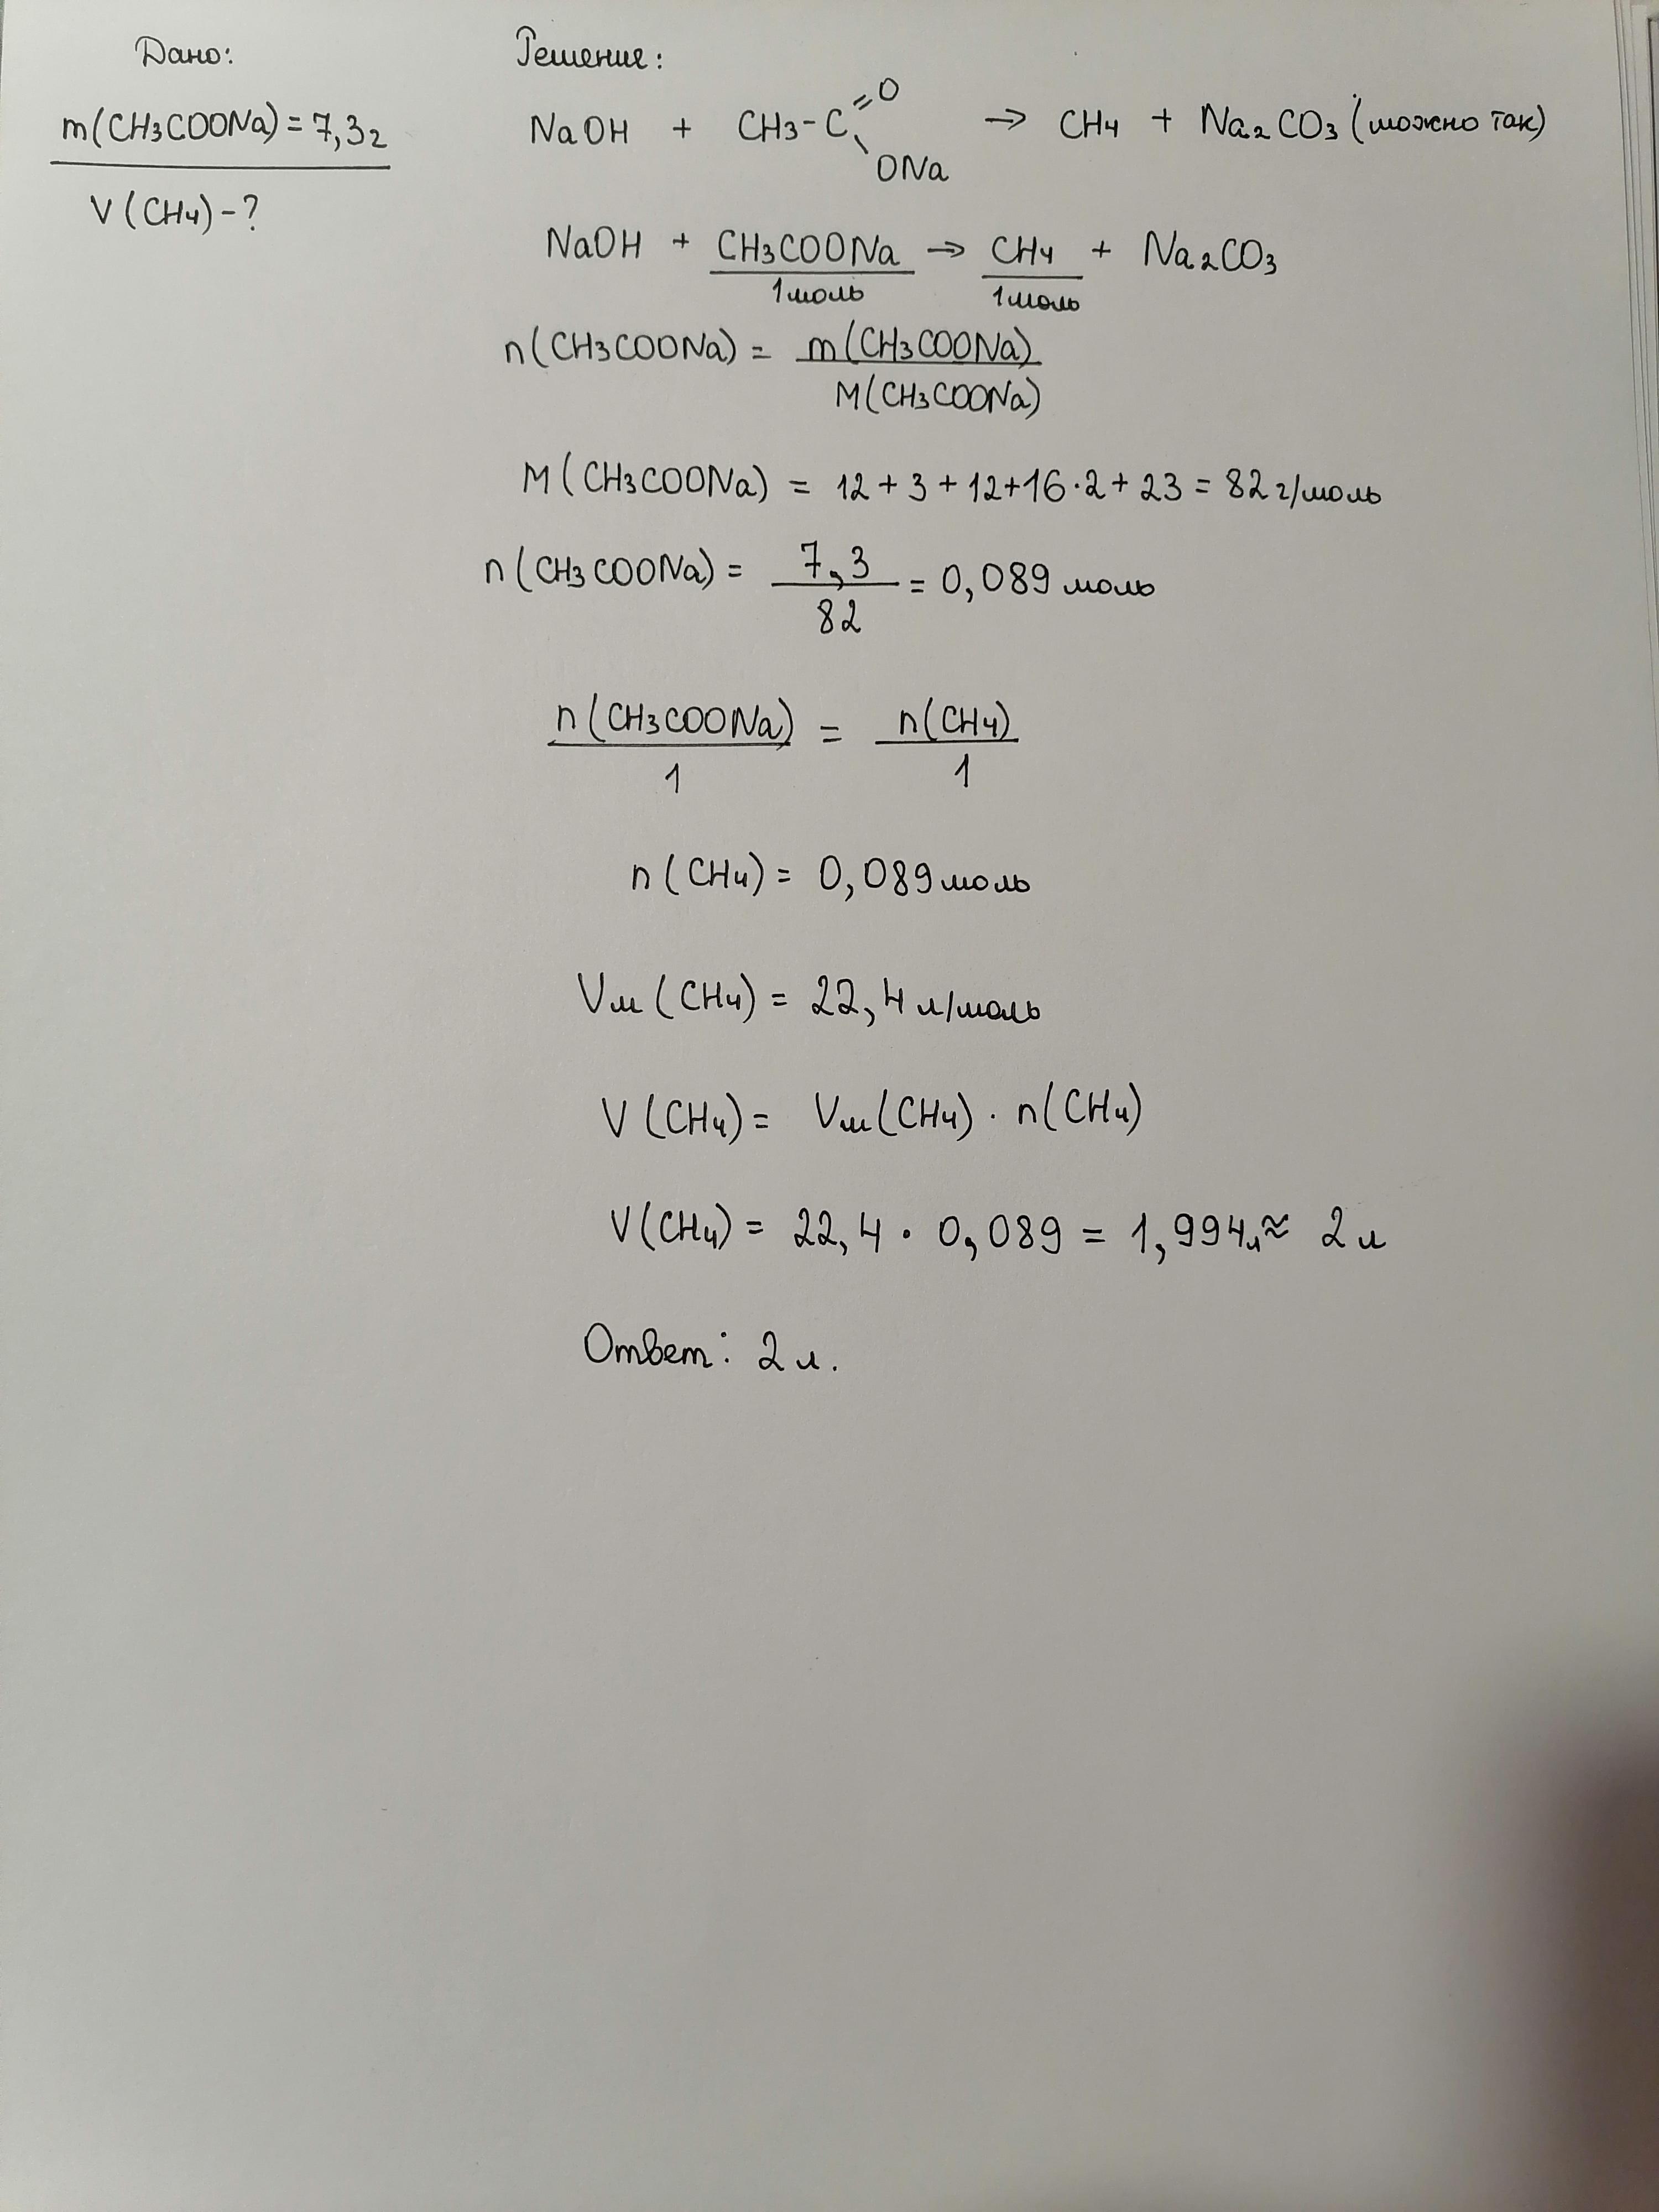 Дано:
m(CH3COONa) = 7,3г
V(CH4) - ?
Решение:
NaOH + CH3-C =O \ ONa → CH4 + Na2CO3 (можно так)
NaOH + CH3COONa → CH4 + Na2CO3
1моль 1моль
n(CH3COONa) = m(CH3COONa)
M(CH3COONa)
M(CH3COONa) = 12 + 3 + 12 + 16 · 2 + 23 = 82 г/моль
n(CH3COONa) = 7,3 = 0,089 моль
82
n(CH3COONa) = n(CH4)
1 1
n(CH4) = 0,089 моль
Vм(CH4) = 22,4 л/моль
V(CH4) = Vм(CH4) · n(CH4)
V(CH4) = 22,4 · 0,089 = 1,994л ≈ 2 л
Ответ: 2 л.